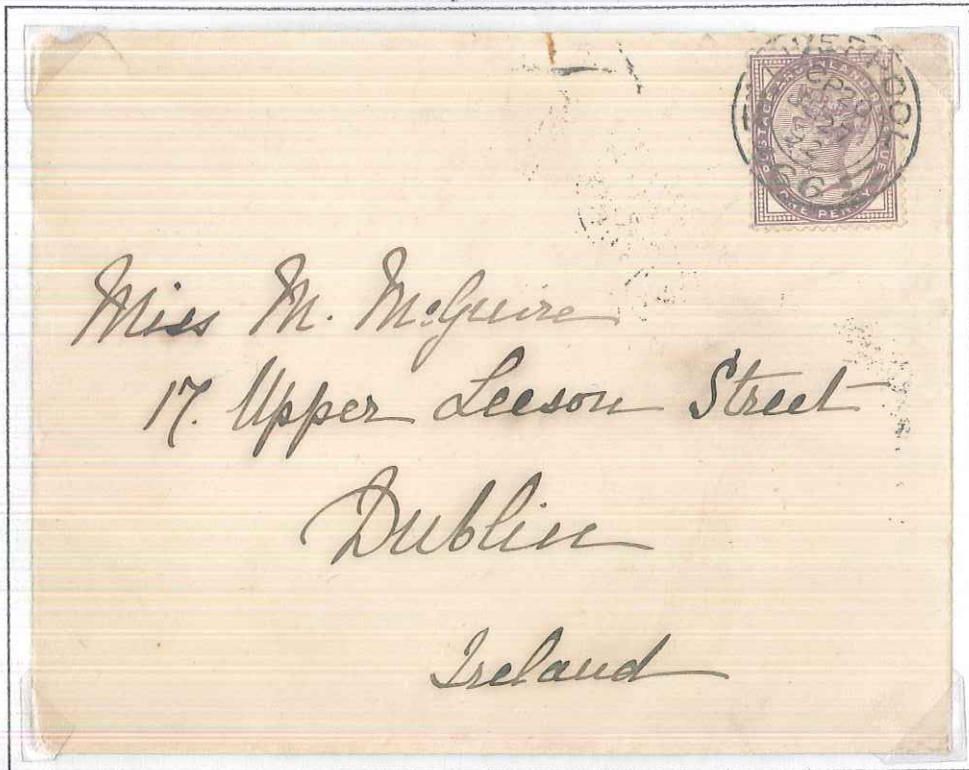 LIVERPOOL
POSTAGE AND INLAND REVENUE
ONE PENNY
Miss M. McGuire
17. Upper Leeson Street
Dublin
Ireland